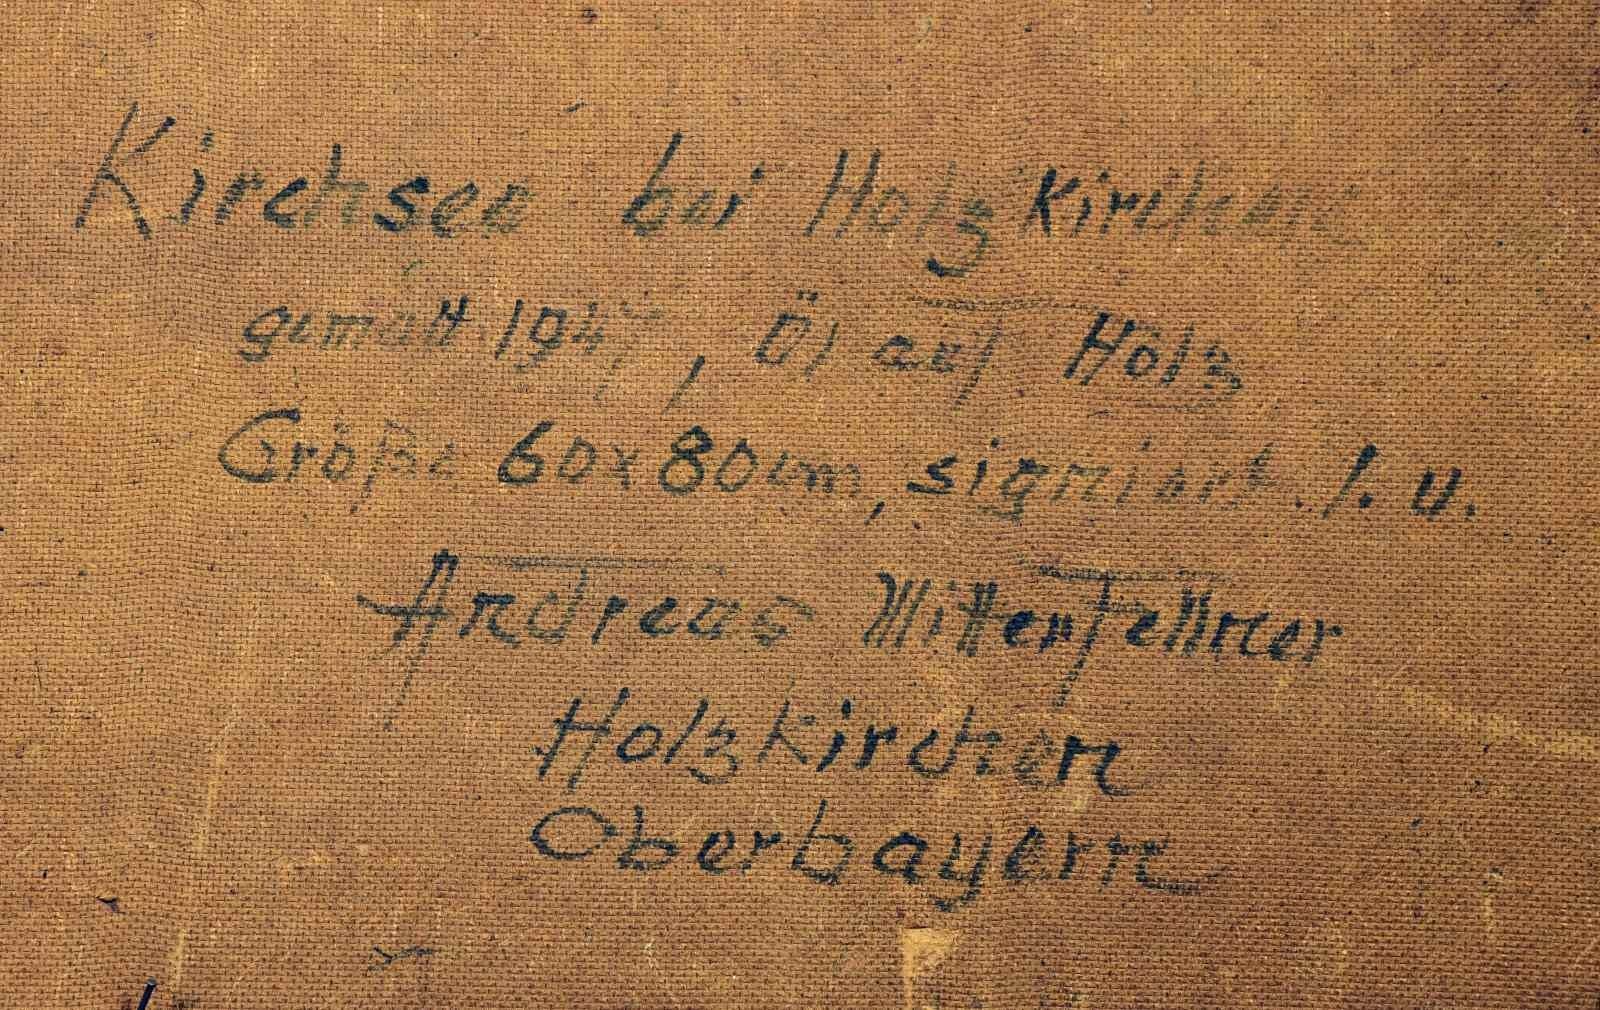 Kirchsee bei Holzkirchen
gemalt 1947, Öl auf Holz
Größe 60x80cm, signiert l. u.
Andreas Mitterfellner
Holzkirchen
Oberbayern